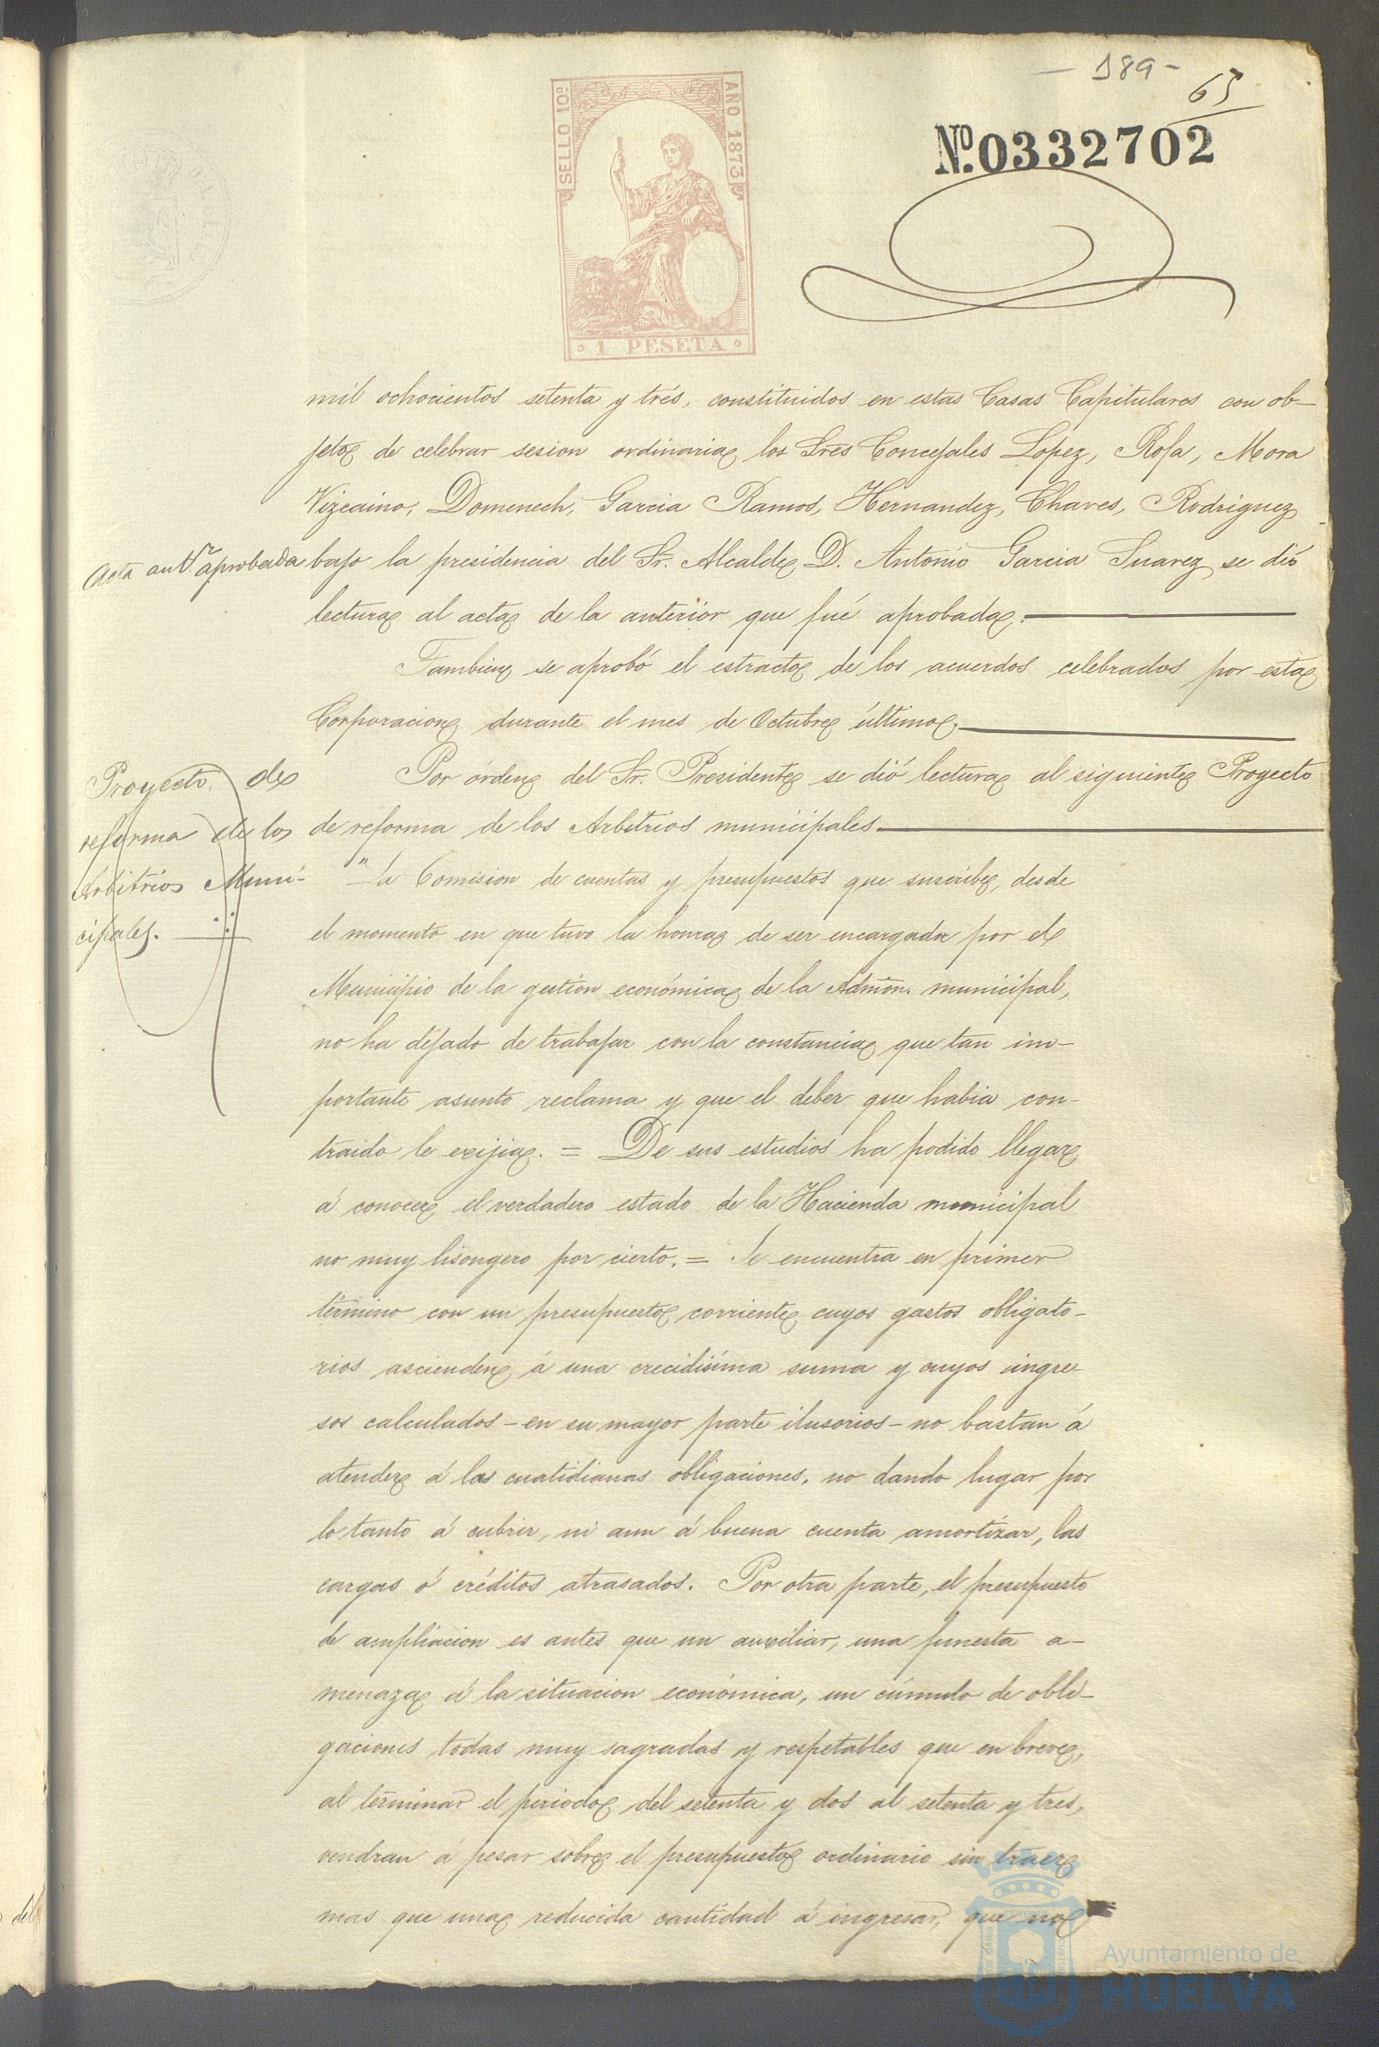 - 189 -
65
SELLO 10º
AÑO 1873
Nº. 0332702
1 PESETA
mil ochocientos setenta y trés, constituidos en estas Casas Capitulares con ob-
jeto de celebrar sesion ordinaria los Sres Concejales Lopez, Rofa, Mora
Vizcaino, Domenech, Garcia Ramos, Hernandez, Chaves, Rodriguez
Acta antr. aprobada
bajo la presidencia del Sr. Alcalde D. Antonio Garcia Suarez se dió
lectura al acta de la anterior que fué aprobada.
Tambien se aprobó el estracto de los acuerdos celebrados por esta
Corporacion durante el mes de Octubre último.
Proyecto de
reforma de los
Arbitrios Muni-
cipales.
Por órden del Sr. Presidente se dió lectura al siguiente Proyecto
de reforma de los Arbitrios municipales.
"La Comision de cuentas y presupuestos que suscribe, desde
el momento en que tuvo la honra de ser encargada por el
Municipio de la gestion económica de la Admon. municipal,
no ha dejado de trabajar con la constancia que tan im-
portante asunto reclama y que el deber que habia con-
traido le exijia. = De sus estudios ha podido llegar
á conocer el verdadero estado de la Hacienda municipal
no muy lisongero por cierto. = Se encuentra en primer
término con un presupuesto corriente cuyos gastos obligato-
rios ascienden á una crecidisima suma y cuyos ingre
sos calculados - en su mayor parte ilusorios - no bastan á
atender á las cuatidianas obligaciones, no dando lugar por
lo tanto á cubrir, ni aun á buena cuenta amortizar, las
cargas ó créditos atrasados. Por otra parte, el presupuesto
de ampliacion es antes que un auxiliar, una funesta a-
menaza á la situacion económica, un cúmulo de obli-
gaciones todas muy sagradas y respetables que en breve,
al terminar el periodo del setenta y dos al setenta y tres,
vendran á pesar sobre el presupuesto ordinario sin traer
mas que una reducida cantidad á ingresar, que no
Ayuntamiento de
HUELVA